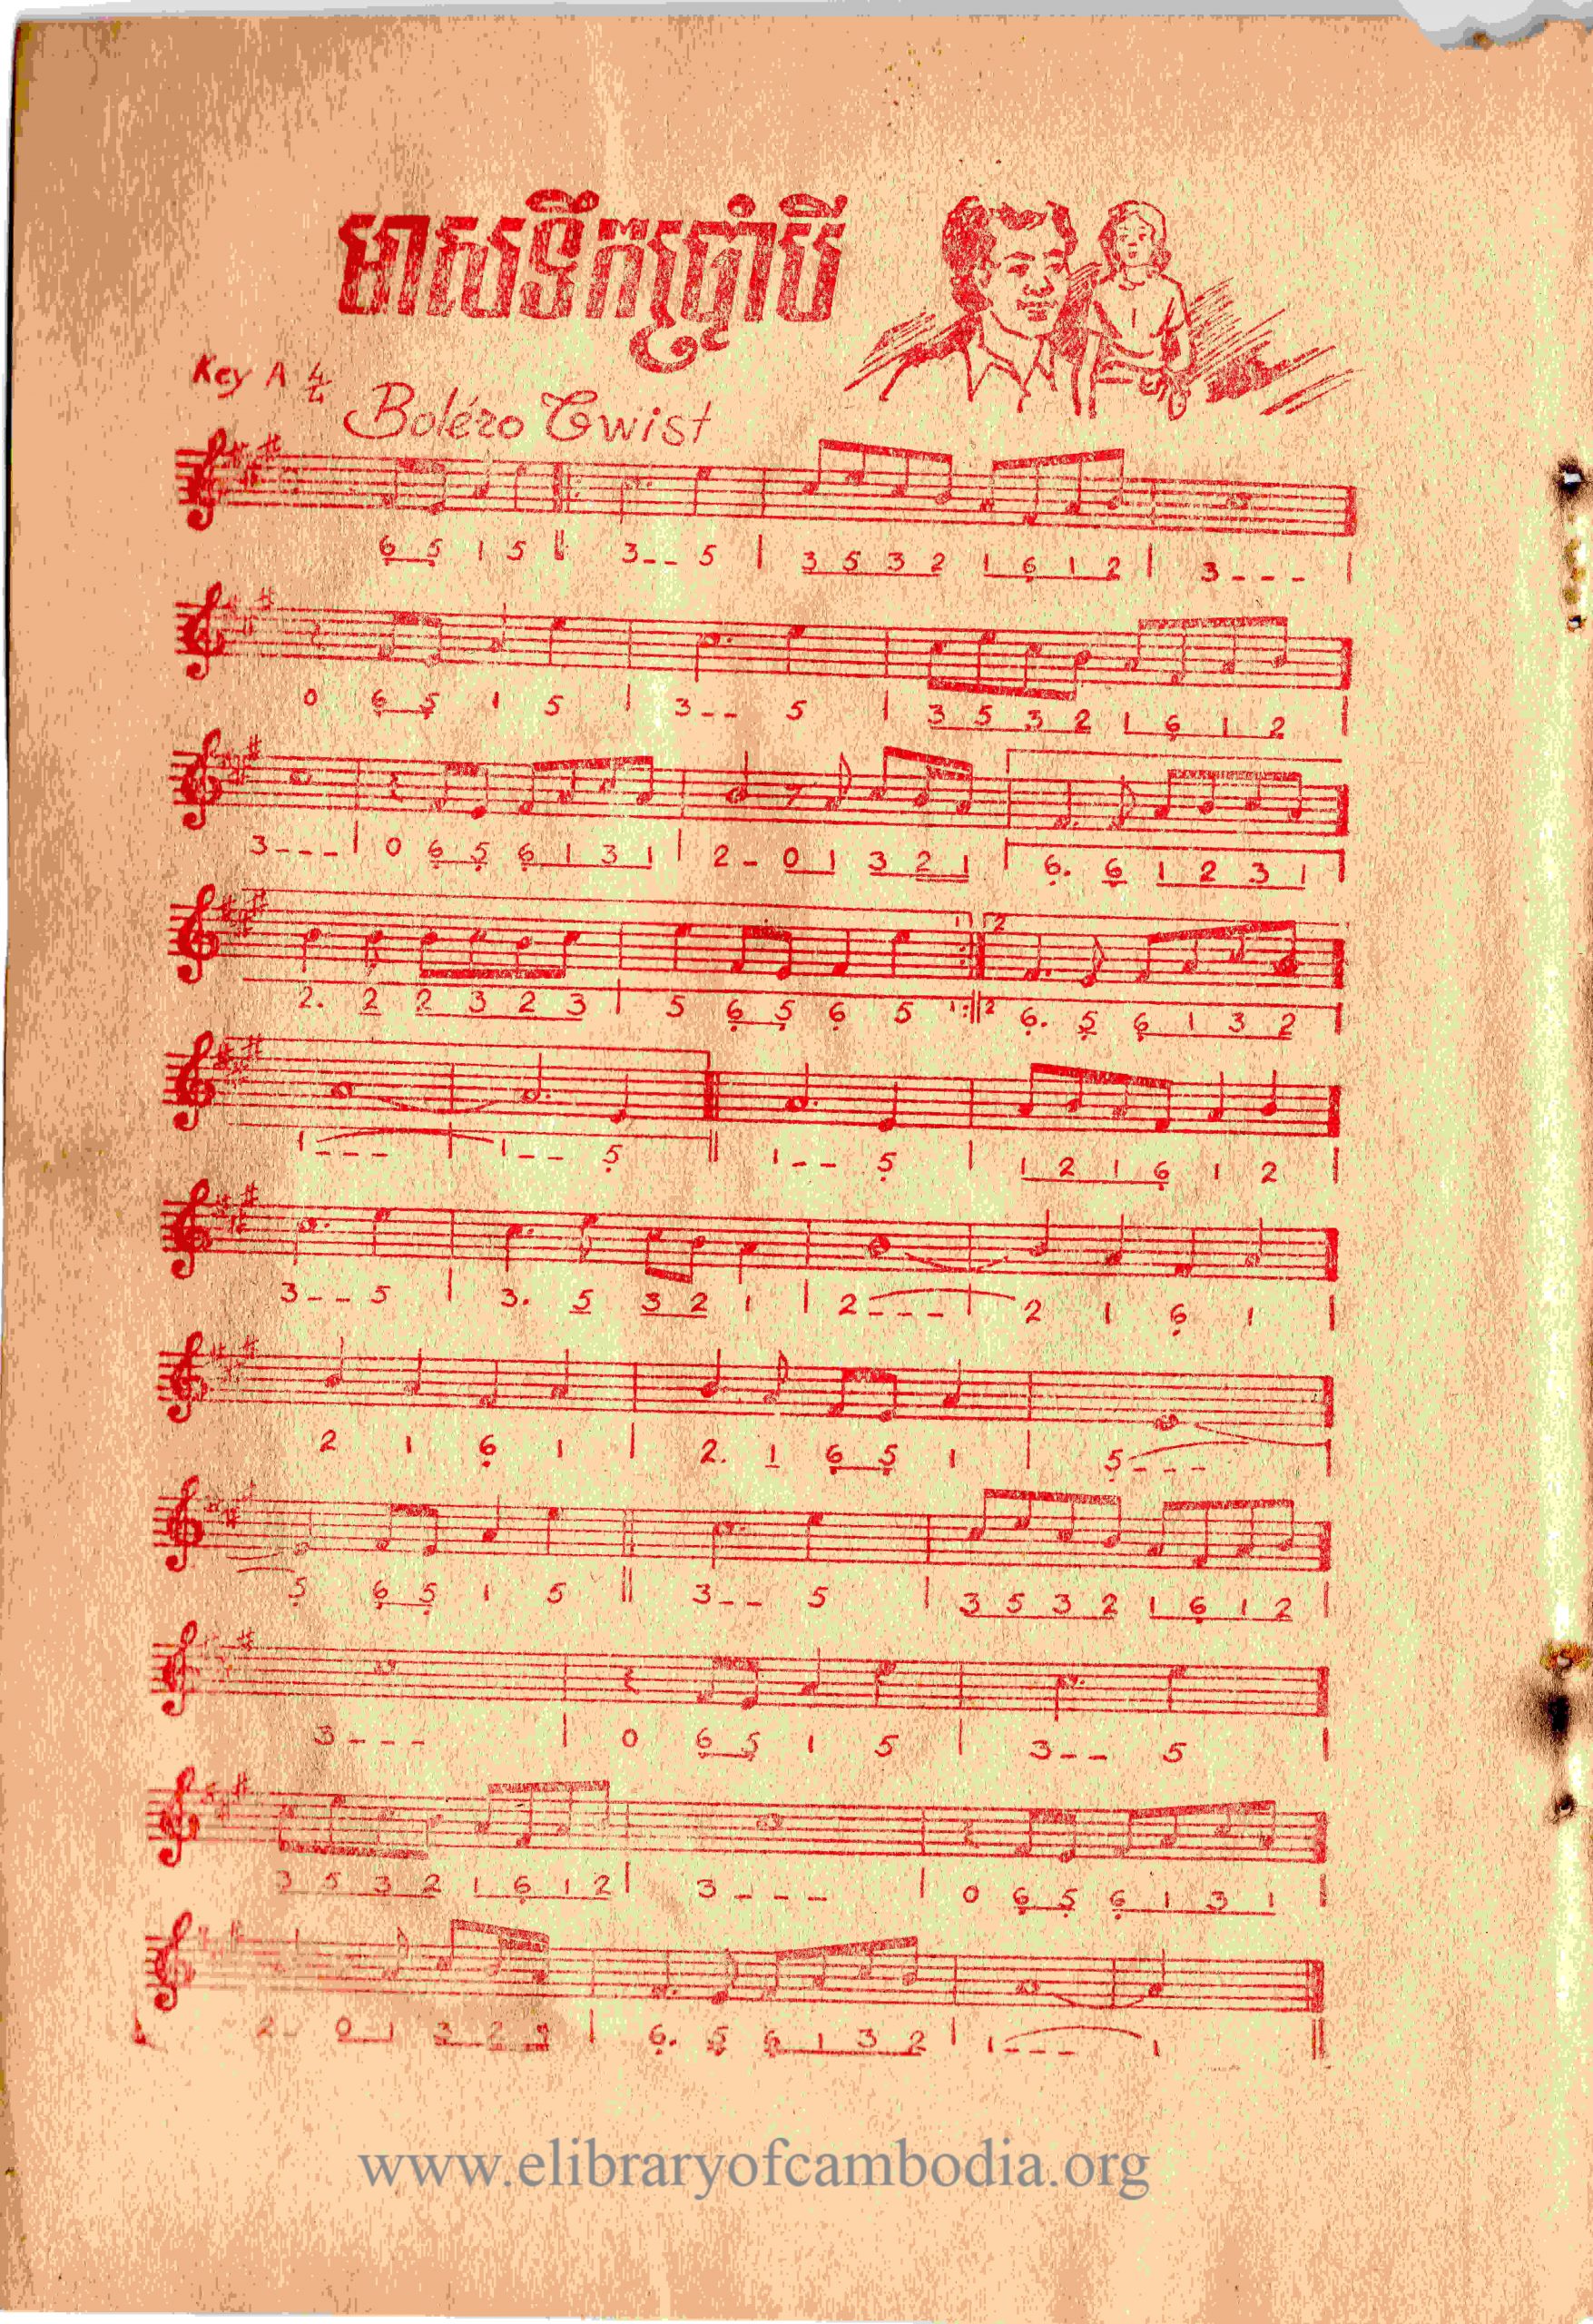 មាសទឹកប្រាំបី
Key A 4/4
Boléro Twist
6 5 1 5 || 3 - - 5 | 3 5 3 2 1 6 1 2 | 3 - - - |
0 6 5 1 5 | 3 - - 5 | 3 5 3 2 1 6 1 2 |
3 - - - | 0 6 5 6 1 3 1 | 2 - 0 1 3 2 1 | 6. 6 1 2 3 1 |
1 2
2. 2 2 3 2 3 | 5 6 5 6 5 1 :|| 2 6. 5 6 1 3 2 |
1 - - - | 1 - - 5 || 1 - - 5 | 1 2 1 6 1 2 |
3 - - 5 | 3. 5 3 2 1 | 2 - - - | 2 1 6 1 |
2 1 6 1 | 2. 1 6 5 1 | 5 - - - |
5 6 5 1 5 || 3 - - 5 | 3 5 3 2 1 6 1 2 |
3 - - - | 0 6 5 1 5 | 3 - - 5 |
3 5 3 2 1 6 1 2 | 3 - - - | 0 6 5 6 1 3 1 |
2 - 0 1 3 2 | 6. 5 6 1 3 2 | 1 - - - 1 ||
www.elibraryofcambodia.org